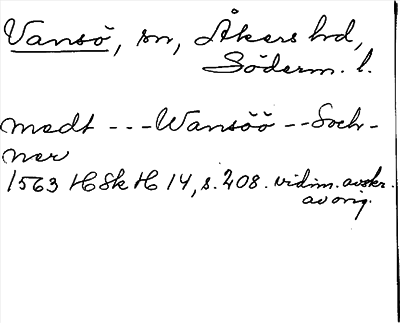 Vansö, sn, Åkers hd,
Söderm. l.
medt --- Wansöö -- Soch-
ner
1563 HSkH 14, s. 208. vidim. avskr.
av orig.